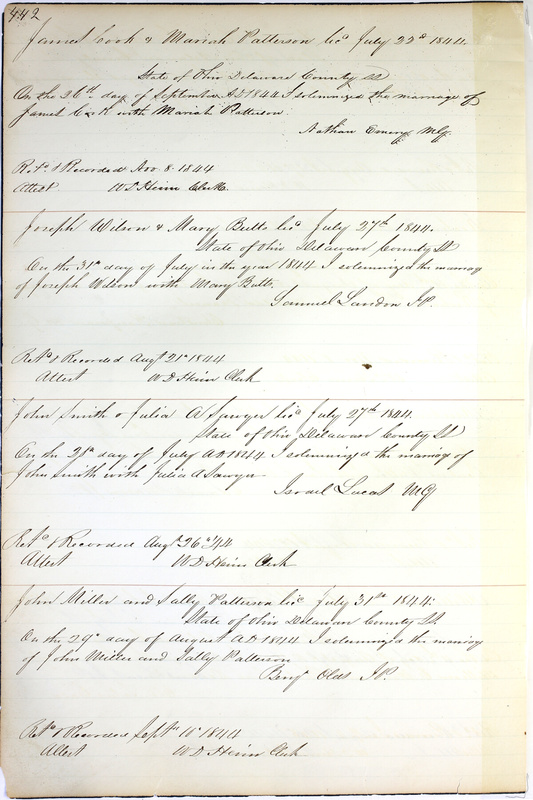 442
James Cook & Mariah Patterson lic July 22d 1844.
State of Ohio Delaware County SS
On the 26th day of September AD 1844 I solemnized the marriage of
James Cook with Mariah Patterson.
Nathan Emery Mg.
Retd & Recorded Nov 8. 1844
Attest W D Heim Clerk.
Joseph Wilson & Mary Butts lic July 27th 1844.
State of Ohio Delaware County SS
On the 31st day of July in the year 1844 I solemnized the marriag
of Joseph Wilson with Mary Butts.
Samuel Landon JP.
Retd & Recorded Augt 21st 1844
Attest W D Heim Clerk
John Smith & Julia A Sawyer lic July 27th 1844.
State of Ohio Delaware County SS
On the 28th day of July AD 1844 I solemnized the marriag of
John Smith with Julia A Sawyer
Israel Lucas MG
Retd & Recorded Augt 26th 44
Attest W D Heim Clerk
John Miller and Sally Patterson lic July 31st 1844.
State of Ohio Delaware County SS
On the 29th day of August AD 1844 I solemnized the marriag
of John Miller and Sally Patterson
Benjn Olds JP.
Retd & Recorded Septr 10th 1844
Attest W D Heim Clerk